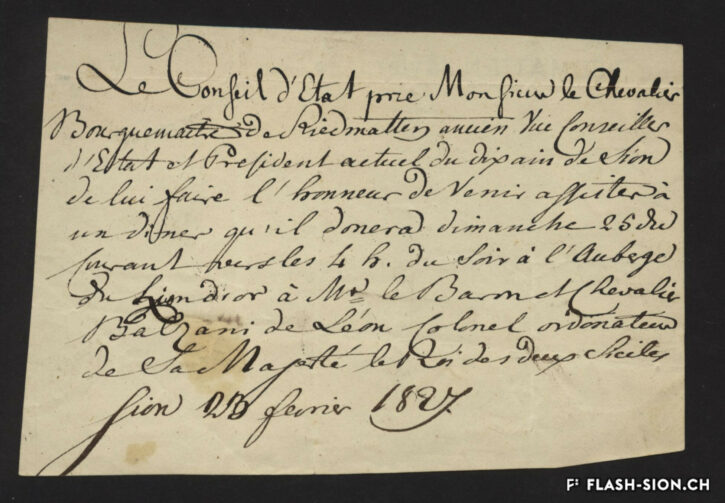 Le Conseil d'Etat prie Monsieur le Chevalier
Bourguemaitre de Riedmatten ancien Vice Conseiller
d'Etat et President actuel du dixain de Sion
de lui faire l'honneur de venir assister à
un diner qu'il donera dimanche 25 du
Courant vers les 4 h. du Soir à l'Auberge
du Lion d'or à Mr le Baron et Chevalier
Balzani de Léon Colonel ordonateur
de Sa Majesté le Roi des deux Siciles
Sion février 1827
F: FLASH-SION.CH